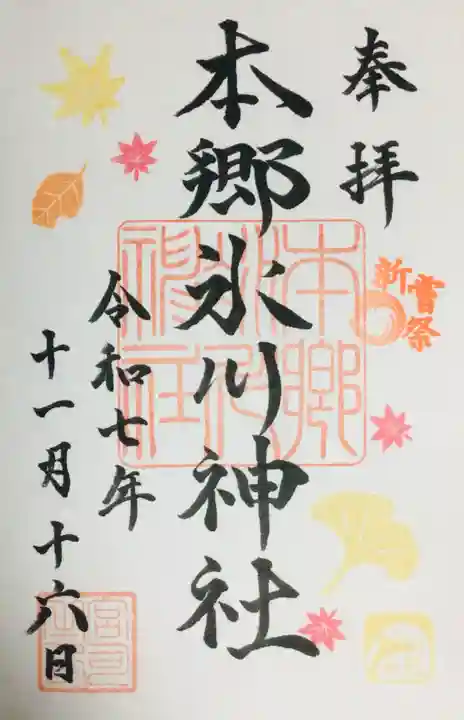 奉拝
新嘗祭
本郷氷川神社
本郷氷川神社
令和七年
十一月十六日